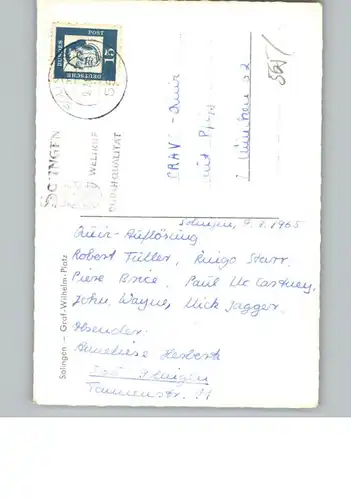 DEUTSCHE
BUNDES
POST
15
SOLINGEN
WELTRUF
DURCH QUALITÄT
BRAVO-Quiz
mit Pfiff
8 München 2
Solingen, 9.1.1965
Quiz-Auflösung
Robert Fuller, Ringo Starr.
Piere Brice, Paul Mc Cartney,
John, Wayne, Mick Jagger.
Absender:
Anneliese Herbertz
565 Solingen
Tannenstr. 11
Solingen — Graf-Wilhelm-Platz